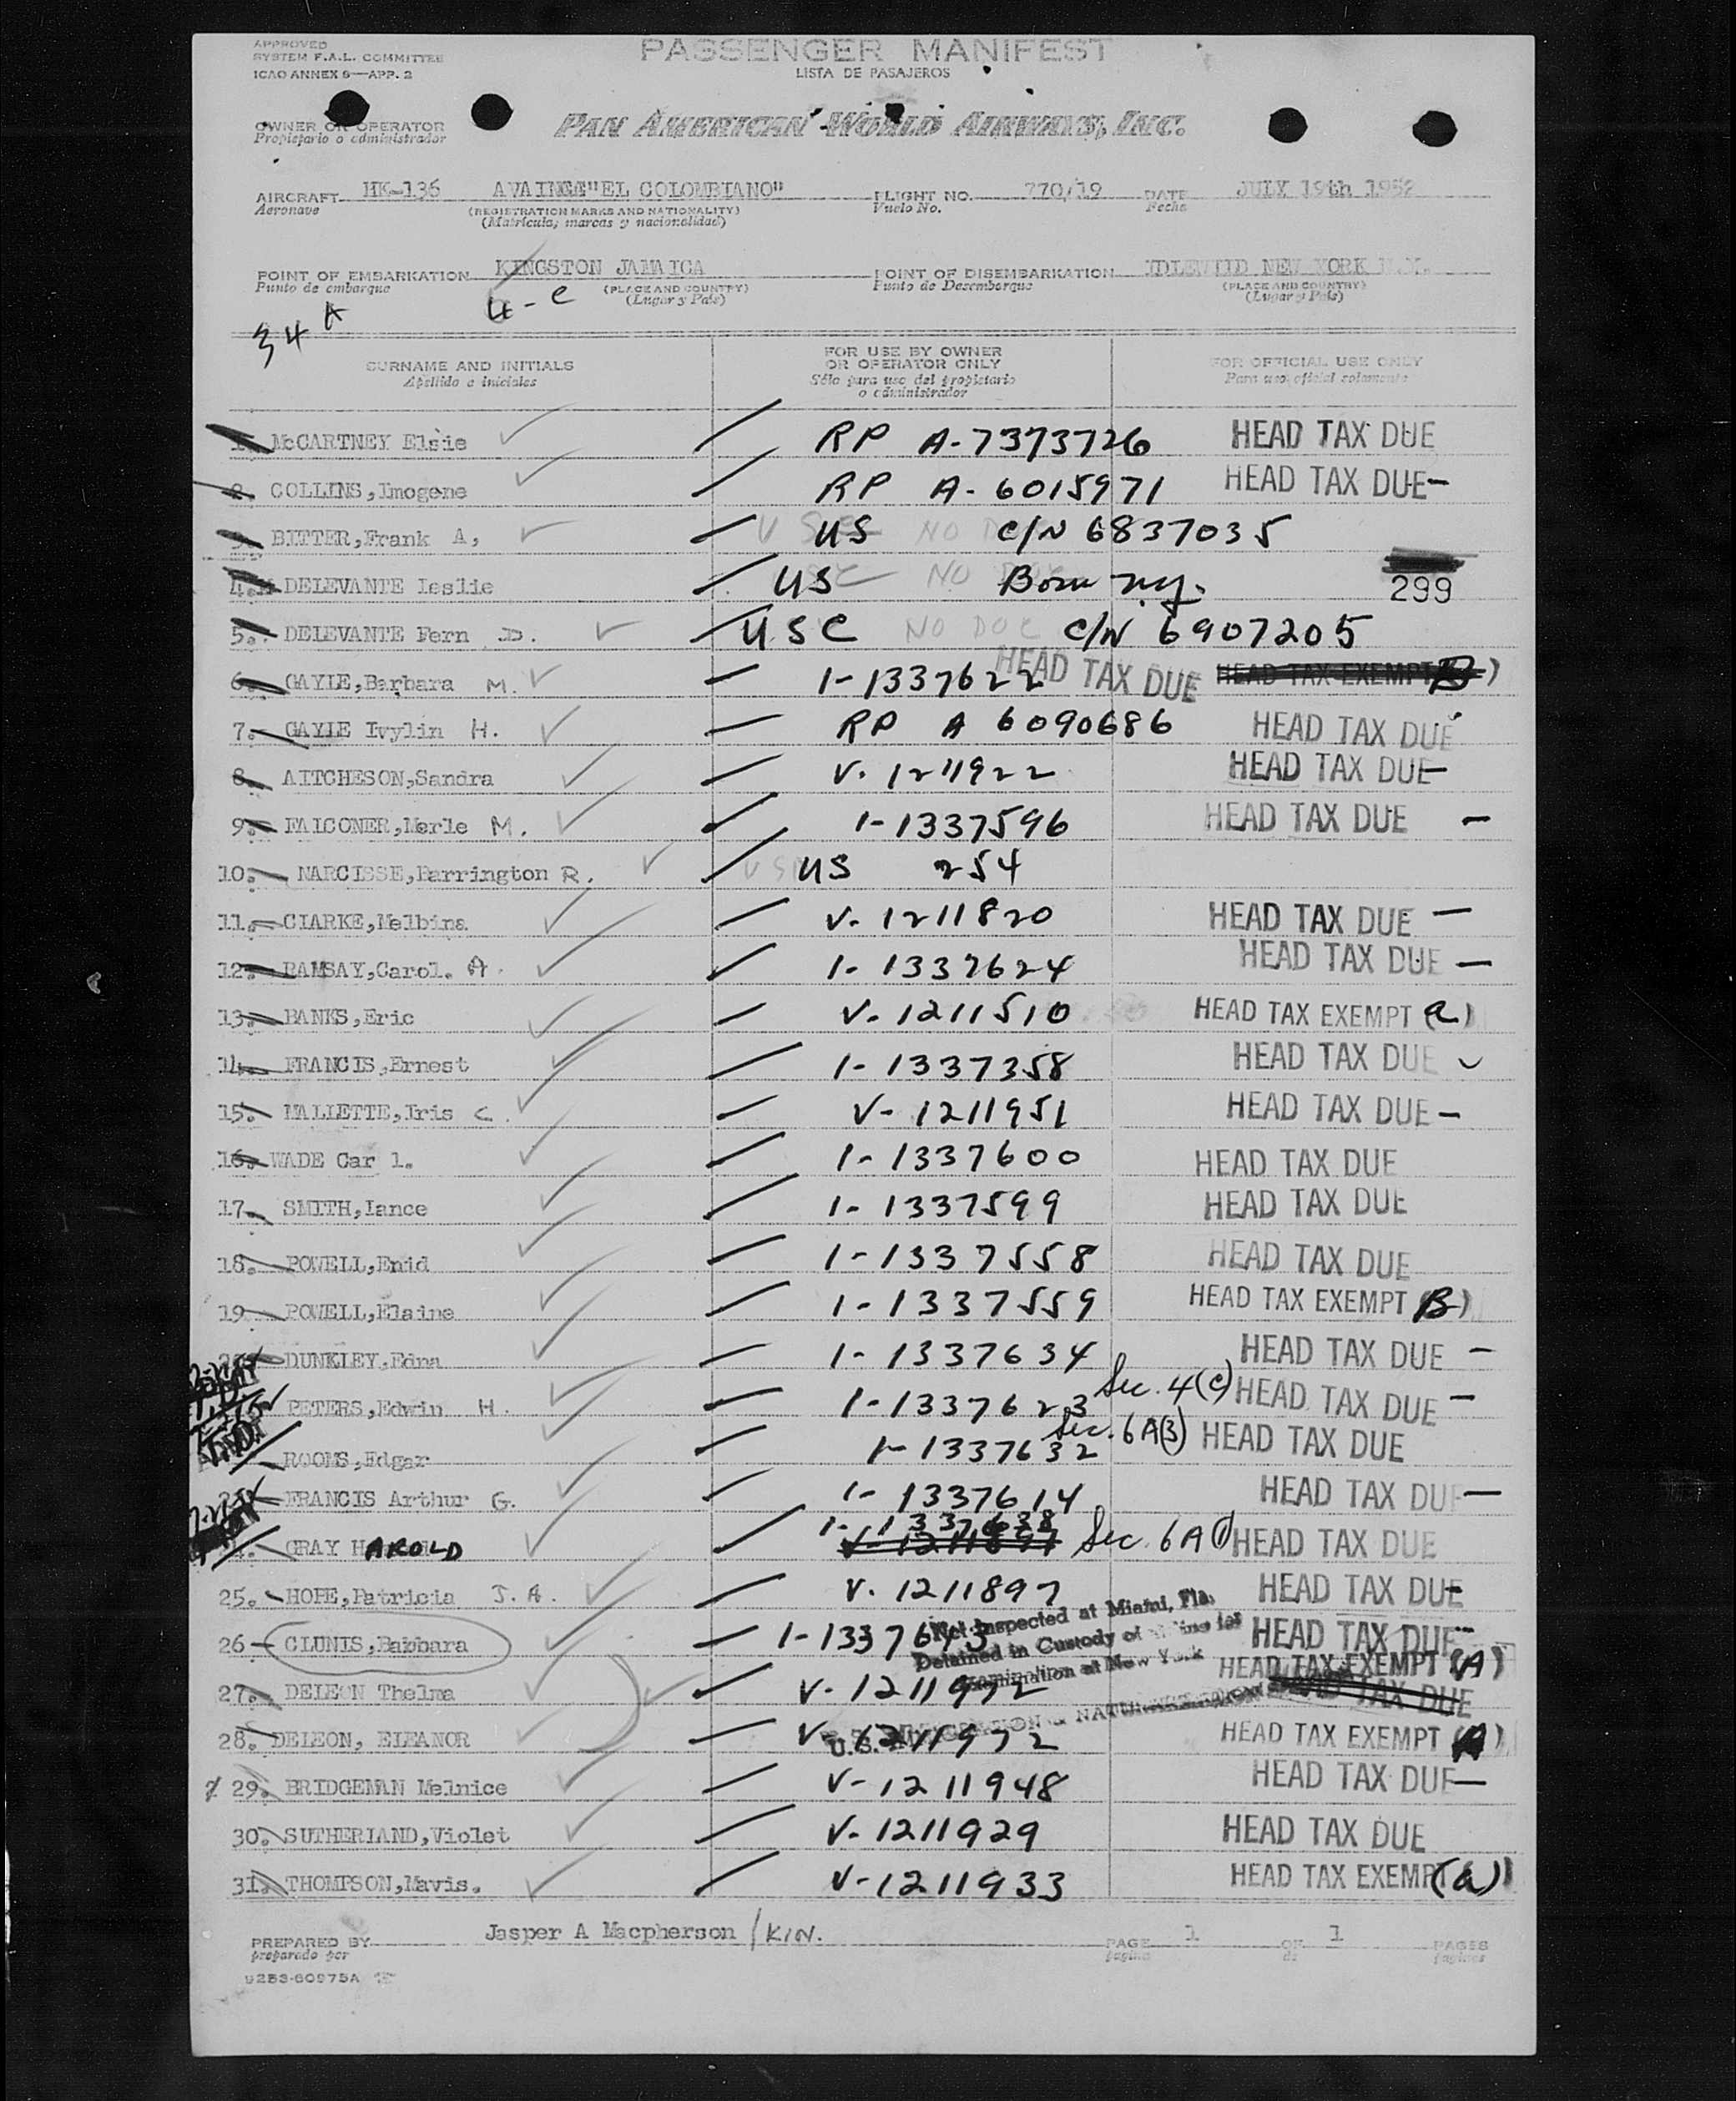 APPROVED
SYSTEM F.A.L. COMMITTEE
ICAO ANNEX 9—APP. 2
PASSENGER MANIFEST
LISTA DE PASAJEROS
OWNER OR OPERATOR
Propietario o administrador
PAN AMERICAN WORLD AIRWAYS, INC.
AIRCRAFT HK-136 "EL COLOMBIANO" FLIGHT NO. 770/19 DATE JULY 19th 1952
Aeronave (REGISTRATION MARKS AND NATIONALITY) Vuelo No. Fecha
(Matricula, marcas y nacionalidad)
POINT OF EMBARKATION KINGSTON JAMAICA POINT OF DISEMBARKATION IDLEWILD NEW YORK N.Y.
Punto de embarque (PLACE AND COUNTRY) Punto de Desembarque (PLACE AND COUNTRY)
4-C (Lugar y Pais) (Lugar y Pais)
34 A
SURNAME AND INITIALS FOR USE BY OWNER OR OPERATOR ONLY FOR OFFICIAL USE ONLY
Apellido e iniciales Sólo para uso del propietario o administrador Para uso oficial solamente
1. McCARTNEY Elsie RP A-7373726 HEAD TAX DUE
2. COLLINS,Imogene RP A-6015971 HEAD TAX DUE-
3. BITTER,Frank A, US NO C/N 6837035
4. DELEVANTE Leslie USC NO Born N.Y. 299
5. DELEVANTE Fern D. USC NO DOC C/N 6907205
6. GAYLE,Barbara M. 1-1337622 HEAD TAX DUE HEAD TAX EXEMPT (B)
7. GAYLE Ivylin H. RP A 6090686 HEAD TAX DUE
8. AITCHESON,Sandra V. 1211922 HEAD TAX DUE-
9. FALCONER,Merle M. 1-1337596 HEAD TAX DUE -
10. NARCISSE,Barrington R. US 254
11. CLARKE,Melbina V. 1211820 HEAD TAX DUE -
12. RAMSAY,Carol. A. 1-1337624 HEAD TAX DUE -
13. BANKS,Eric V. 1211510 HEAD TAX EXEMPT (a)
14. FRANCIS,Ernest 1-1337358 HEAD TAX DUE
15. MALLETTE,Iris C. V-1211951 HEAD TAX DUE -
16. WADE Car l. 1-1337600 HEAD TAX DUE
17. SMITH,Lance 1-1337599 HEAD TAX DUE
18. POWELL,Enid 1-1337558 HEAD TAX DUE
19 POWELL,Elaine 1-1337559 HEAD TAX EXEMPT (B)
DUNKLEY,Edna 1-1337634 HEAD TAX DUE -
PETERS,Edwin H. 1-1337623 Sec. 4(C) HEAD TAX DUE -
ROOMS,Edgar 1-1337632 Sec. 6A(3) HEAD TAX DUE
FRANCIS Arthur G. 1-1337614 HEAD TAX DUE -
1-1337638
GRAY HAROLD Sec. 6A HEAD TAX DUE
25. HOPE,Patricia J.A. V. 1211897 HEAD TAX DUE
Not Inspected at Miami, Fla.
26 CLUNIS,Barbara HEAD TAX DUE
Detained in Custody of Airline for
Examination at New York
27. DELEON Thelma V. 1211972 HEAD TAX EXEMPT (A)
HEAD TAX DUE
28. DELEON, ELEANOR V 1211972 HEAD TAX EXEMPT (A)
U.S. IMMIGRATION & NATURALIZATION
29. BRIDGEMAN Melnice V-1211948 HEAD TAX DUE -
30. SUTHERLAND,Violet V-1211929 HEAD TAX DUE
31. THOMPSON,Mavis. V-1211933 HEAD TAX EXEMPT (a)
PREPARED BY Jasper A Macpherson /KIN. PAGE 1 OF 1 PAGES
preparado por pagina de paginas
9253-60975A